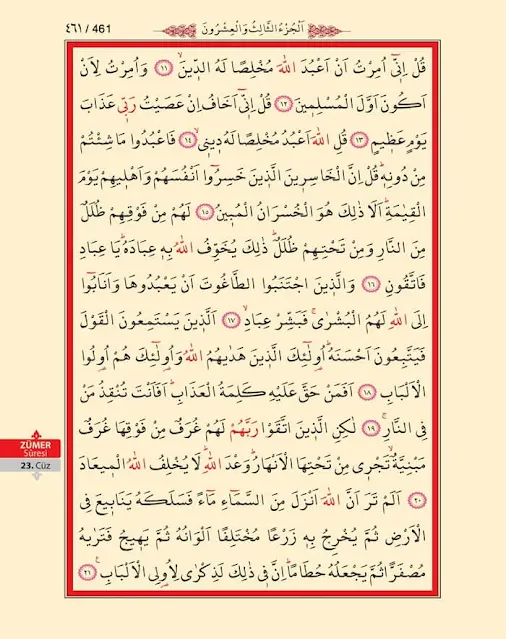 اَلْجُزْءُ الثَّالِثُ وَالْعِشْرُونَ
٤٦١ / 461
قُلْ اِنّٖٓي اُمِرْتُ اَنْ اَعْبُدَ اللّٰهَ مُخْلِصًا لَهُ الدّٖينَۙ ﴿١١﴾ وَاُمِرْتُ لِاَنْ
اَكُونَ اَوَّلَ الْمُسْلِمٖينَ ﴿١٢﴾ قُلْ اِنّٖٓي اَخَافُ اِنْ عَصَيْتُ رَبّٖي عَذَابَ
يَوْمٍ عَظٖيمٍ ﴿١٣﴾ قُلِ اللّٰهَ اَعْبُدُ مُخْلِصًا لَهُ دٖينٖيۙ ﴿١٤﴾ فَاعْبُدُوا مَا شِئْتُمْ
مِنْ دُونِهٖؕ قُلْ اِنَّ الْخَاسِرٖينَ الَّذٖينَ خَسِرُٓوا اَنْفُسَهُمْ وَاَهْلٖيهِمْ يَوْمَ
الْقِيٰمَةِؕ اَلَا ذٰلِكَ هُوَ الْخُسْرَانُ الْمُبٖينُ ﴿١٥﴾ لَهُمْ مِنْ فَوْقِهِمْ ظُلَلٌ
مِنَ النَّارِ وَمِنْ تَحْتِهِمْ ظُلَلٌؕ ذٰلِكَ يُخَوِّفُ اللّٰهُ بِهٖ عِبَادَهُؕ يَا عِبَادِ
فَاتَّقُونِ ﴿١٦﴾ وَالَّذٖينَ اجْتَنَبُوا الطَّاغُوتَ اَنْ يَعْبُدُوهَا وَاَنَابُٓوا
اِلَى اللّٰهِ لَهُمُ الْبُشْرٰىۚ فَبَشِّرْ عِبَادِۙ ﴿١٧﴾ اَلَّذٖينَ يَسْتَمِعُونَ الْقَوْلَ
فَيَتَّبِعُونَ اَحْسَنَهُؕ اُو۬لٰٓئِكَ الَّذٖينَ هَدٰيهُمُ اللّٰهُ وَاُو۬لٰٓئِكَ هُمْ اُو۬لُوا
الْاَلْبَابِ ﴿١٨﴾ اَفَمَنْ حَقَّ عَلَيْهِ كَلِمَةُ الْعَذَابِؕ اَفَاَنْتَ تُنْقِذُ مَنْ
فِي النَّارِۚ ﴿١٩﴾ لٰكِنِ الَّذٖينَ اتَّقَوْا رَبَّهُمْ لَهُمْ غُرَفٌ مِنْ فَوْقِهَا غُرَفٌ
مَبْنِيَّةٌۙ تَجْرٖي مِنْ تَحْتِهَا الْاَنْهَارُؕ وَعْدَ اللّٰهِؕ لَا يُخْلِفُ اللّٰهُ الْمٖيعَادَ
﴿٢٠﴾ اَلَمْ تَرَ اَنَّ اللّٰهَ اَنْزَلَ مِنَ السَّمَٓاءِ مَٓاءً فَسَلَكَهُ يَنَابٖيعَ فِي
الْاَرْضِ ثُمَّ يُخْرِجُ بِهٖ زَرْعًا مُخْتَلِفًا اَلْوَانُهُ ثُمَّ يَهٖيجُ فَتَرٰيهُ
مُصْفَرًّا ثُمَّ يَجْعَلُهُ حُطَامًاؕ اِنَّ فٖي ذٰلِكَ لَذِكْرٰى لِاُو۬لِي الْاَلْبَابِۚ ﴿٢١﴾
ZÜMER
Sûresi
23. Cüz